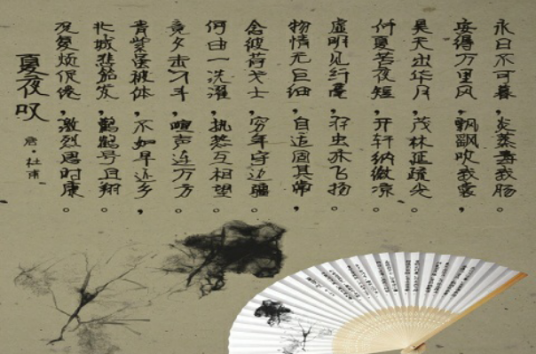 永日不可暮,炎蒸毒我肠。
安得万里风,飘飖吹我裳。
昊天出华月,茂林延疏光。
仲夏苦夜短,开轩纳微凉。
虚明见纤毫,羽虫亦飞扬。
物情无巨细,自适固其常。
念彼荷戈士,穷年守边疆。
何由一洗濯,执热互相望。
竟夕击刁斗,喧声连万方。
青紫虽被体,不如早还乡。
北城悲笳发,鹳鹤号且翔。
况复烦促倦,激烈思时康。
夏夜叹
唐·杜甫